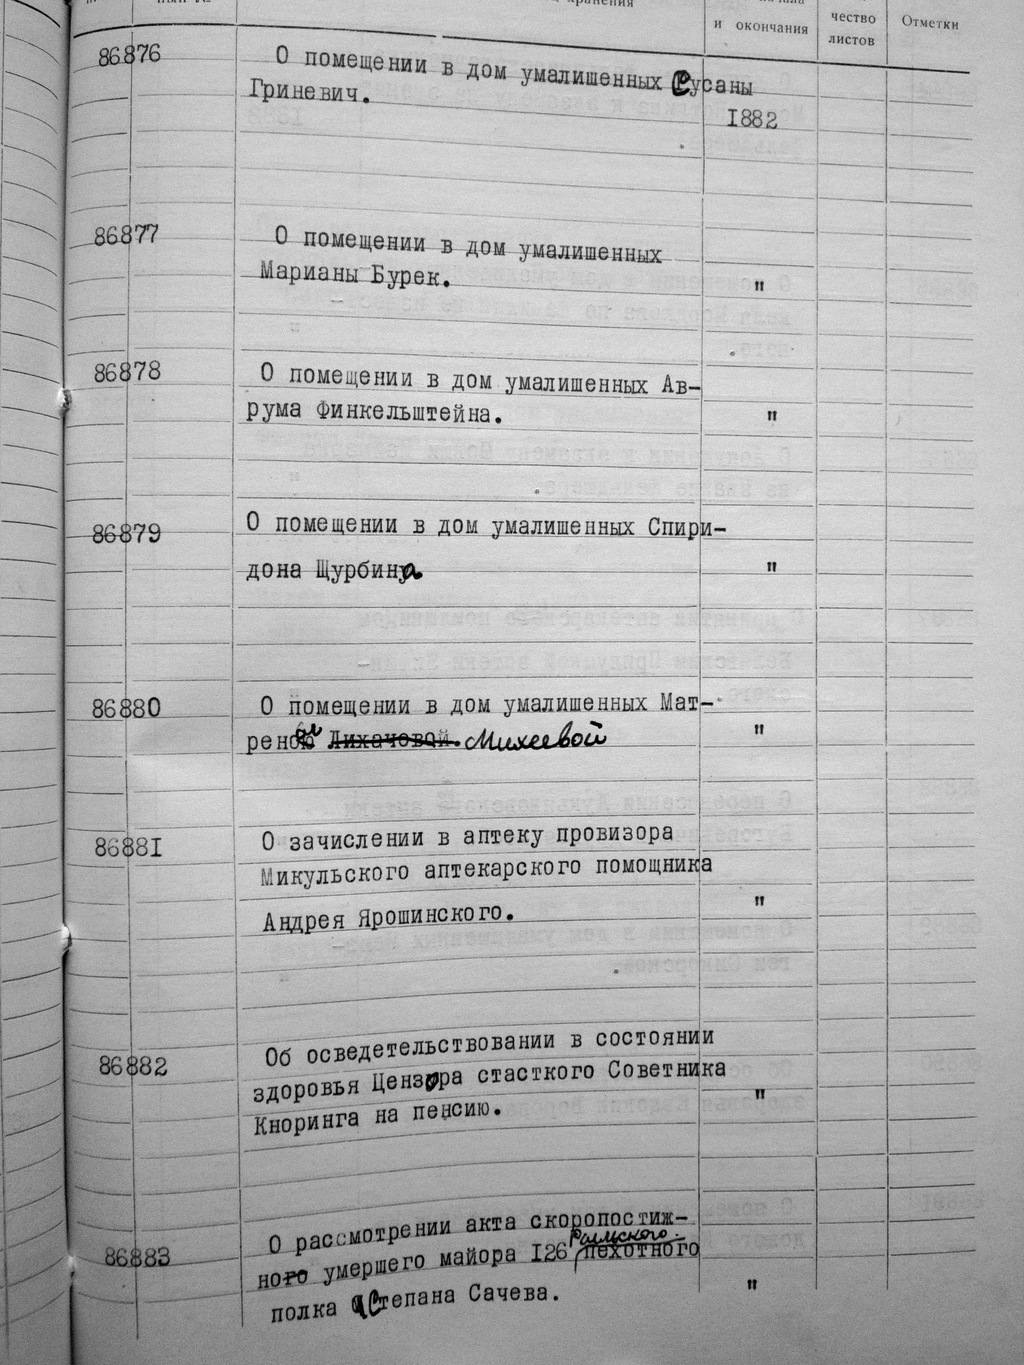 хранения
и окончания
чество
листов
Отметки
86876
О помещении в дом умалишенных Сусаны
Гриневич.
1882
86877
О помещении в дом умалишенных
Марианы Бурек.
"
86878
О помещении в дом умалишенных Ав-
рума Финкельштейна.
"
86879
О помещении в дом умалишенных Спири-
дона Щурбина.
"
86880
О помещении в дом умалишенных Мат-
реной Лихачовой. Михеевой
"
86881
О зачислении в аптеку провизора
Микульского аптекарского помощника
Андрея Ярошинского.
"
86882
Об осведетельствовании в состоянии
здоровья Цензора стасткого Советника
Кноринга на пенсию.
"
86883
О рассмотрении акта скоропостиж-
ного умершего майора 126 Рыльского пехотного
полка Степана Сачева.
"